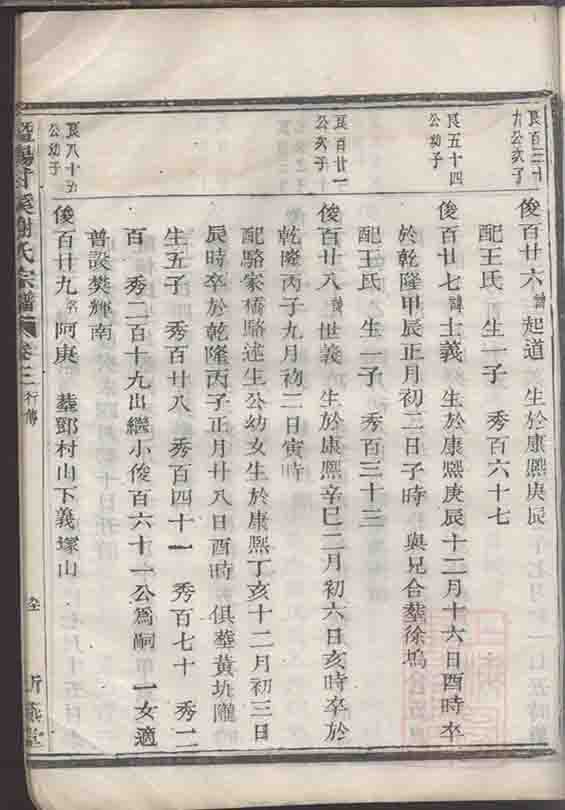 良百三十
九公次子
俊百廿六諱起道 生於康熙庚辰
配王氏 生一子 秀百六十七
良五十四
公幼子
俊百廿七諱士義 生於康熙庚辰十二月十六日酉時卒
於乾隆甲辰正月初二日子時 與兄合墓徐塢
配王氏 生一子 秀百三十三
良百廿一
公次子
俊百廿八諱世義 生於康熙辛巳二月初六日亥時卒於
乾隆丙子九月初二日寅時
配駱家橋駱述生公幼女生於康熙丁亥十二月初三日
辰時卒於乾隆丙子正月廿八日酉時 俱墓黃坑隴
生五子 秀百廿八 秀百四十一 秀百七十 秀二
百 秀二百十九出繼小俊百六十一公爲嗣 一女適
普設樊輝南
良八十五
公幼子
俊百廿九名阿庚 墓鄧村山下義塚山
暨陽 溪謝氏宗譜 卷三 行傳